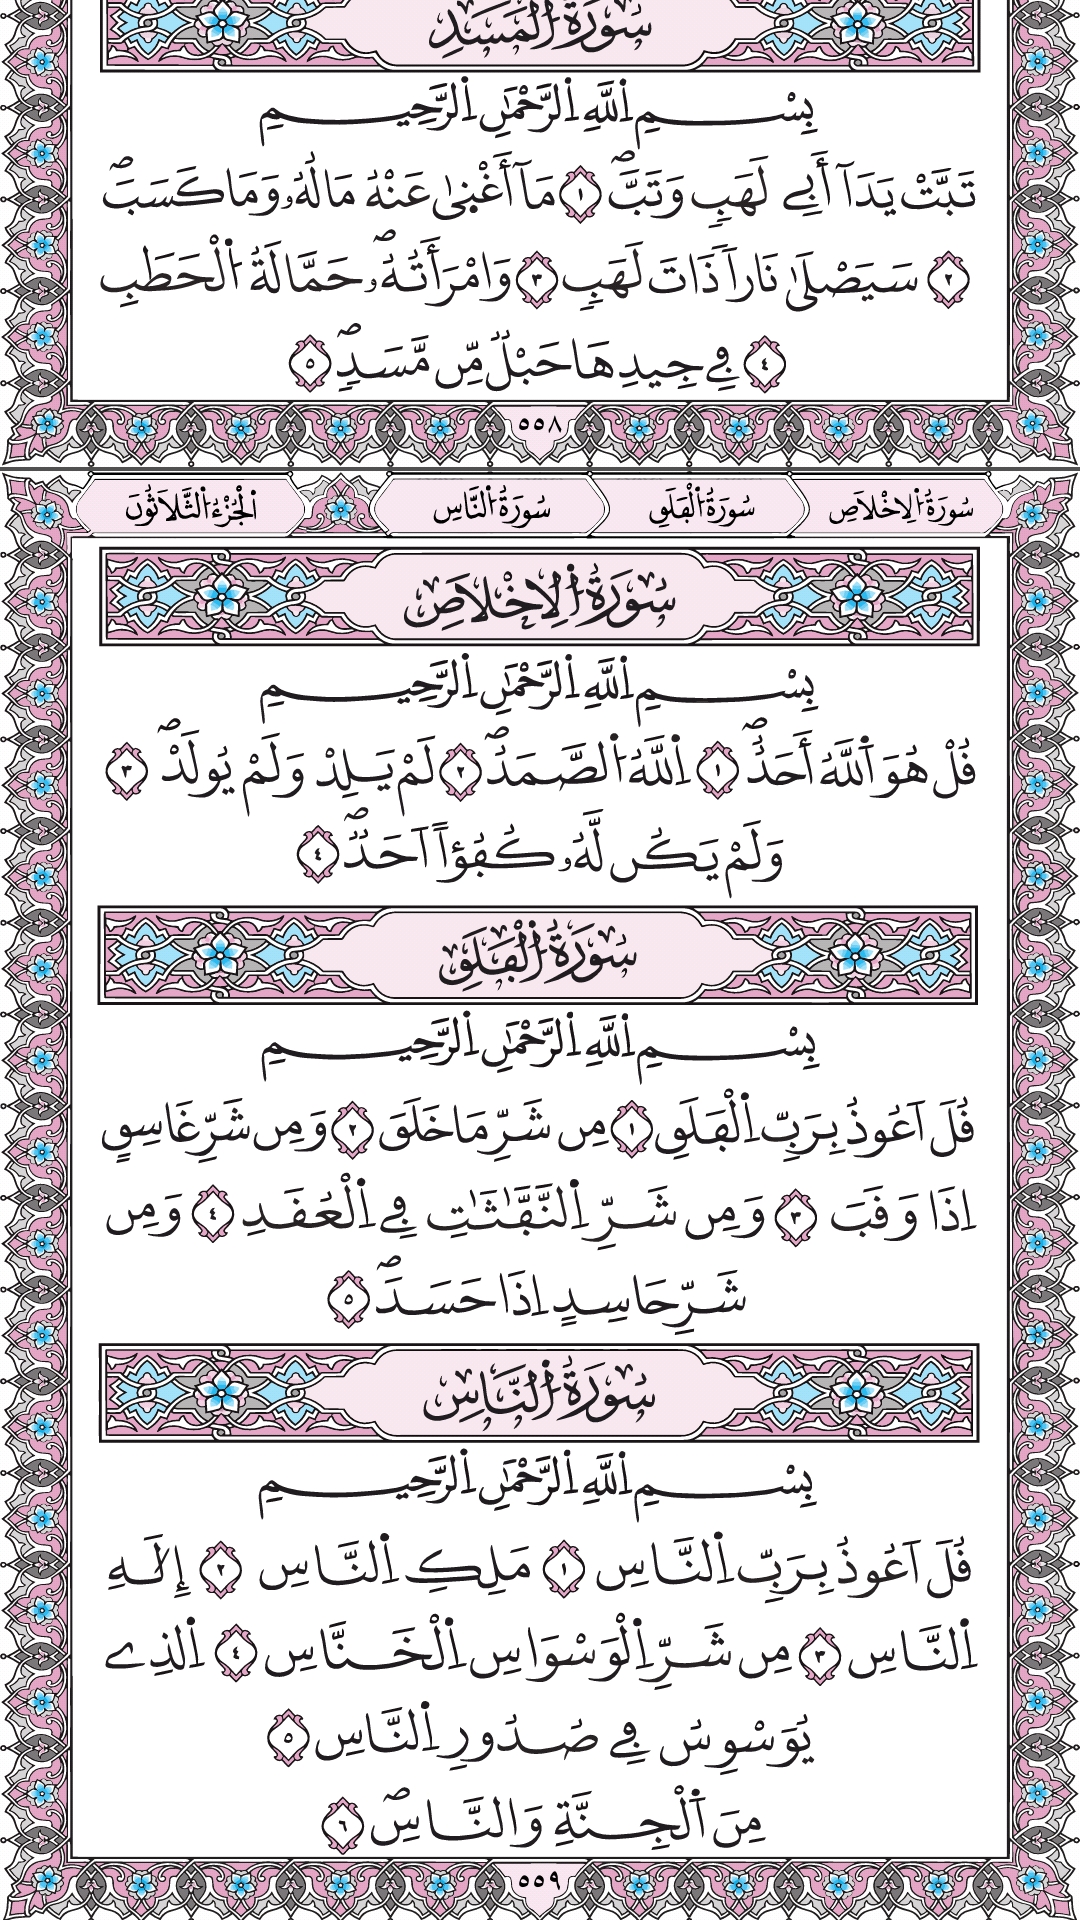 سُورَةُ الْمَسَدِ
بِسْمِ اِ۬للَّهِ اِ۬لرَّحْمَٰنِ اِ۬لرَّحِيمِ
تَبَّتْ يَدَآ أَبِے لَهَبٍ وَتَبَّۖ ١ مَآ أَغْنۭيٰ عَنْهُ مَالُهُۥ وَمَا كَسَبَۖ
٢ سَيَصْلَىٰ نَاراٗ ذَاتَ لَهَبٍ ٣ وَامْرَأَتُهُۥۖ حَمَّالَةُ اُ۬لْحَطَبِ
٤ فِے جِيدِهَا حَبْلٞ مِّن مَّسَدٖۖ ٥
٥٥٨
سُورَةُ اُ۬لِاخْلَاصِ سُورَةُ اُ۬لْفَلَقِ سُورَةُ اُ۬لنَّاسِ اَ۬لْجُزْءُ اُ۬لثَّلَاثُونَ
سُورَةُ اُ۬لِاخْلَاصِ
بِسْمِ اِ۬للَّهِ اِ۬لرَّحْمَٰنِ اِ۬لرَّحِيمِ
قُلْ هُوَ اَ۬للَّهُ أَحَدٌۖ ١ اِ۬للَّهُ اُ۬لصَّمَدُۖ ٢ لَمْ يَلِدْ وَلَمْ يُولَدْۖ ٣
وَلَمْ يَكُن لَّهُۥ كُفُؤاً اَحَدٌۖ ٤
سُورَةُ اُ۬لْفَلَقِ
بِسْمِ اِ۬للَّهِ اِ۬لرَّحْمَٰنِ اِ۬لرَّحِيمِ
قُلَ اَعُوذُ بِرَبِّ اِ۬لْفَلَقِ ١ مِن شَرِّ مَا خَلَقَ ٢ وَمِن شَرِّ غَاسِقٍ
اِذَا وَقَبَ ٣ وَمِن شَرِّ اِ۬لنَّفَّٰثَٰتِ فِے اِ۬لْعُقَدِ ٤ وَمِن
شَرِّ حَاسِدٍ اِذَا حَسَدَۖ ٥
سُورَةُ اُ۬لنَّاسِ
بِسْمِ اِ۬للَّهِ اِ۬لرَّحْمَٰنِ اِ۬لرَّحِيمِ
قُلَ اَعُوذُ بِرَبِّ اِ۬لنَّاسِ ١ مَلِكِ اِ۬لنَّاسِ ٢ إِلَٰهِ
اِ۬لنَّاسِ ٣ مِن شَرِّ اِ۬لْوَسْوَاسِ اِ۬لْخَنَّاسِ ٤ اِ۬لذِے
يُوَسْوِسُ فِے صُدُورِ اِ۬لنَّاسِ ٥
مِنَ اَ۬لْجِنَّةِ وَالنَّاسِۖ ٦
٥٥٩